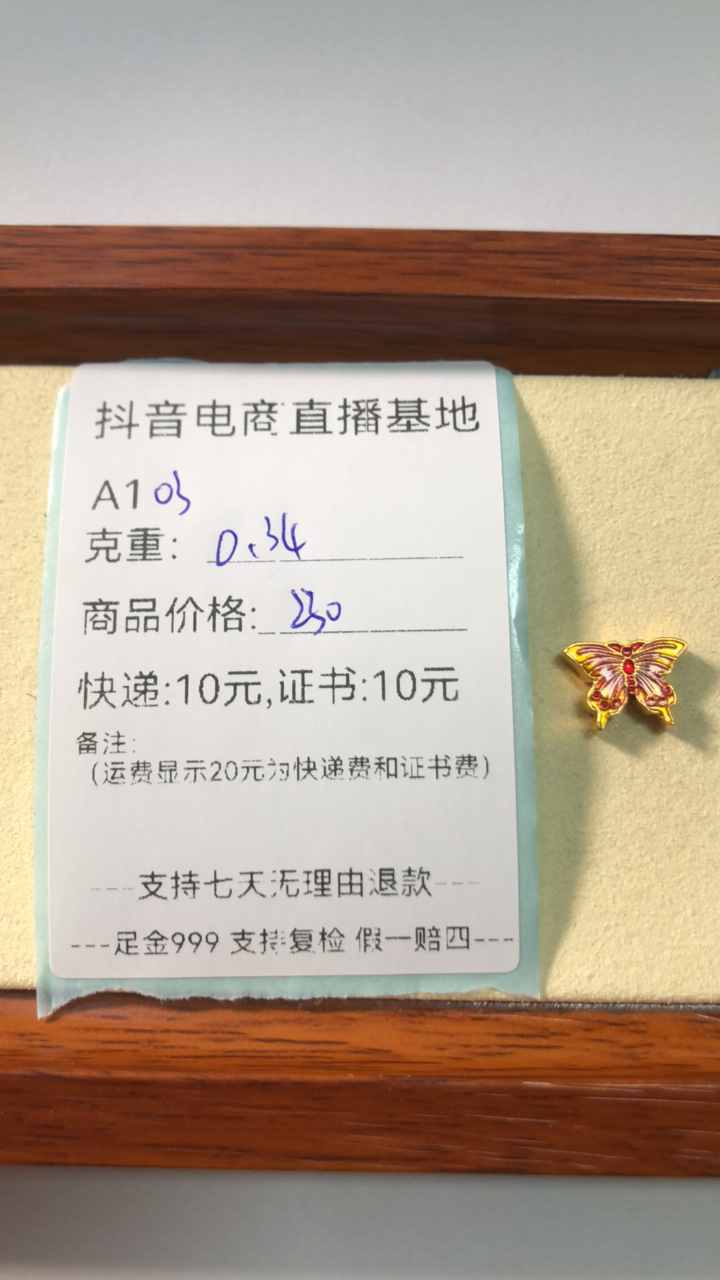 抖音电商直播基地
A103
克重：0.34
商品价格:230
快递:10元,证书:10元
备注:
（运费显示20元为快递费和证书费）
---支持七天无理由退款---
---足金999 支持复检 假一赔四---